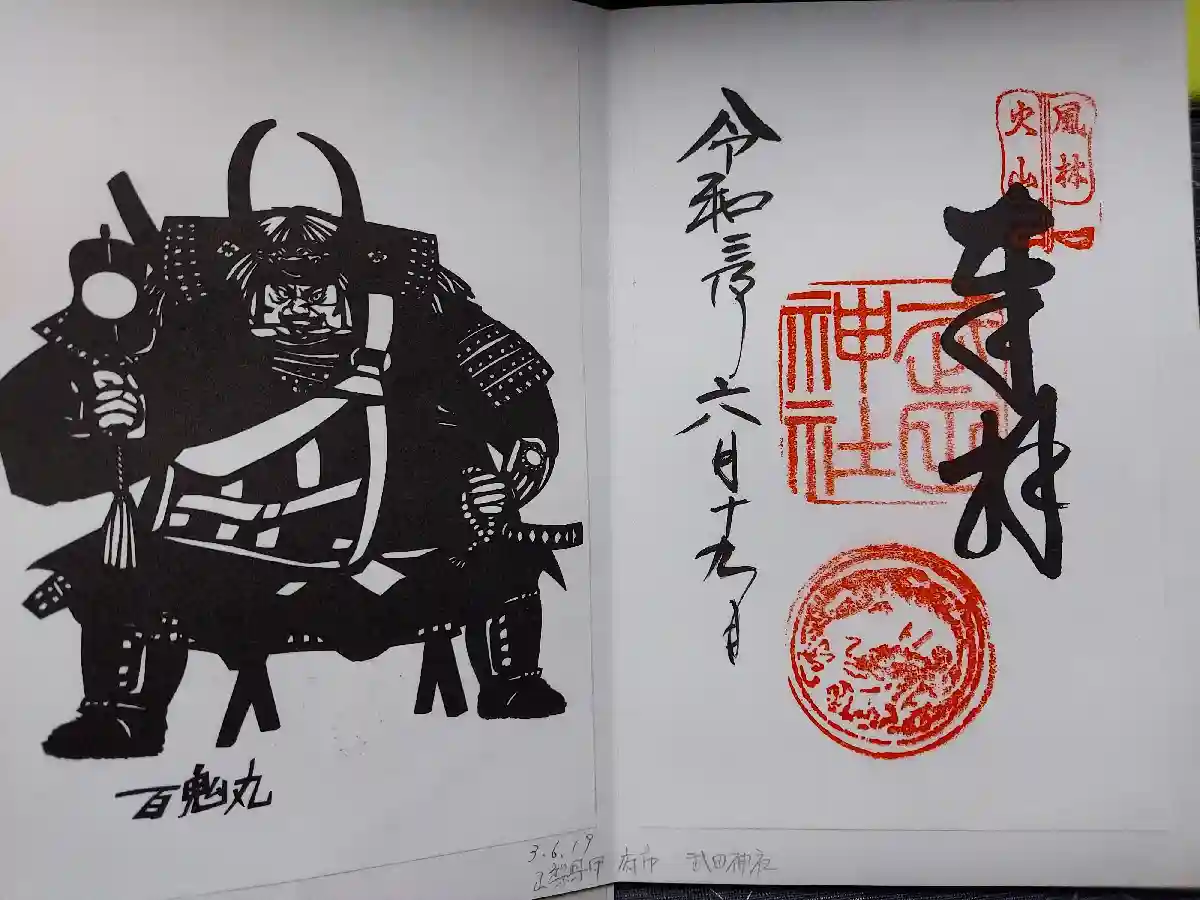 風林
火山
奉拝
武田
神社
令和三年六月十九日
百鬼丸
3.6.19
山梨県甲府市 武田神社